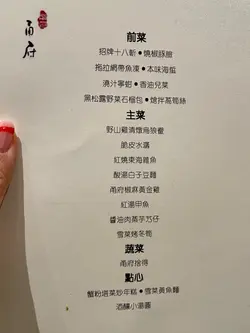 甬府
前菜
招牌十八斬●燒椒豚脆
搖拉網帶魚凍●本味海蜇
澆汁寧蚶●香油兒菜
黑松露野菜石榴包●熗拌萵筍絲
主菜
野山雞清燉烏狼鯗
脆皮水潺
紅燒東海雞魚
酸湯白子豆麵
甬府椒麻黃金雞
紅湯甲魚
醬油肉蒸芋艿仔
雪菜烤冬筍
蔬菜
甬府捨得
點心
蟹粉塔菜炒年糕●雪菜黃魚麵
酒釀小湯圓